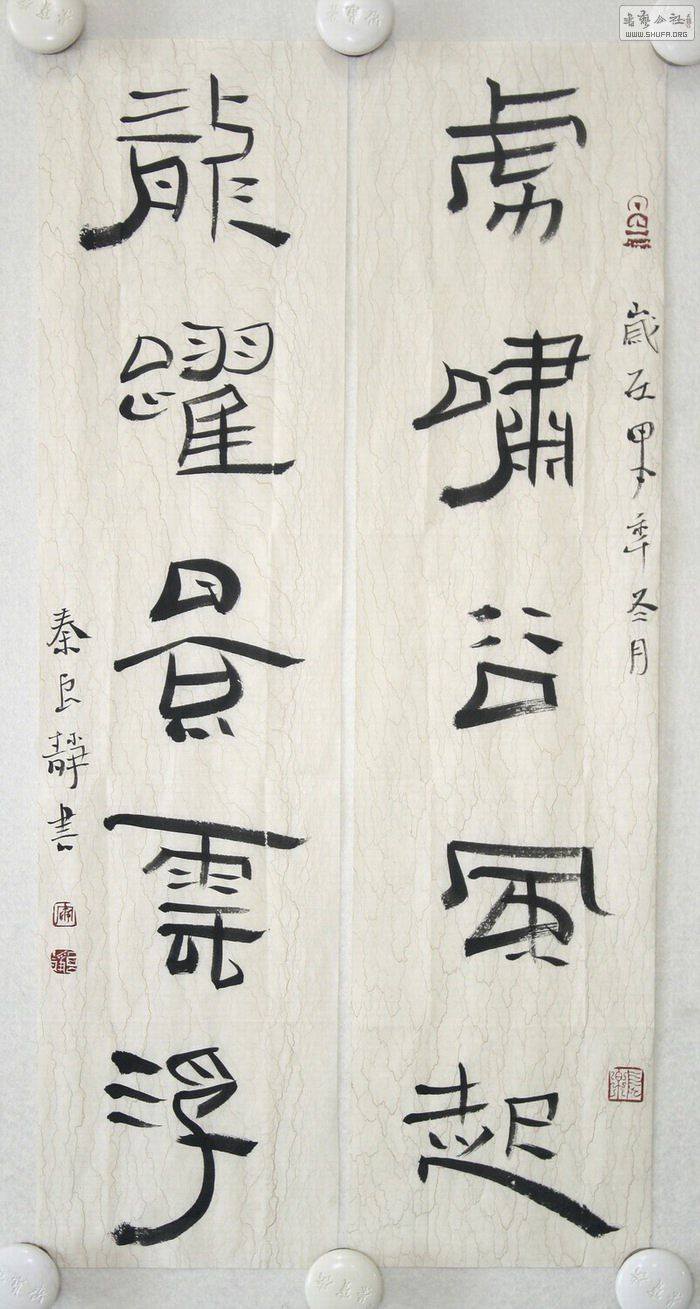 歲在甲午年冬月
虎嘯谷風起
龍躍景雲浮
秦良靜書
書藝公社
WWW.SHUFA.ORG